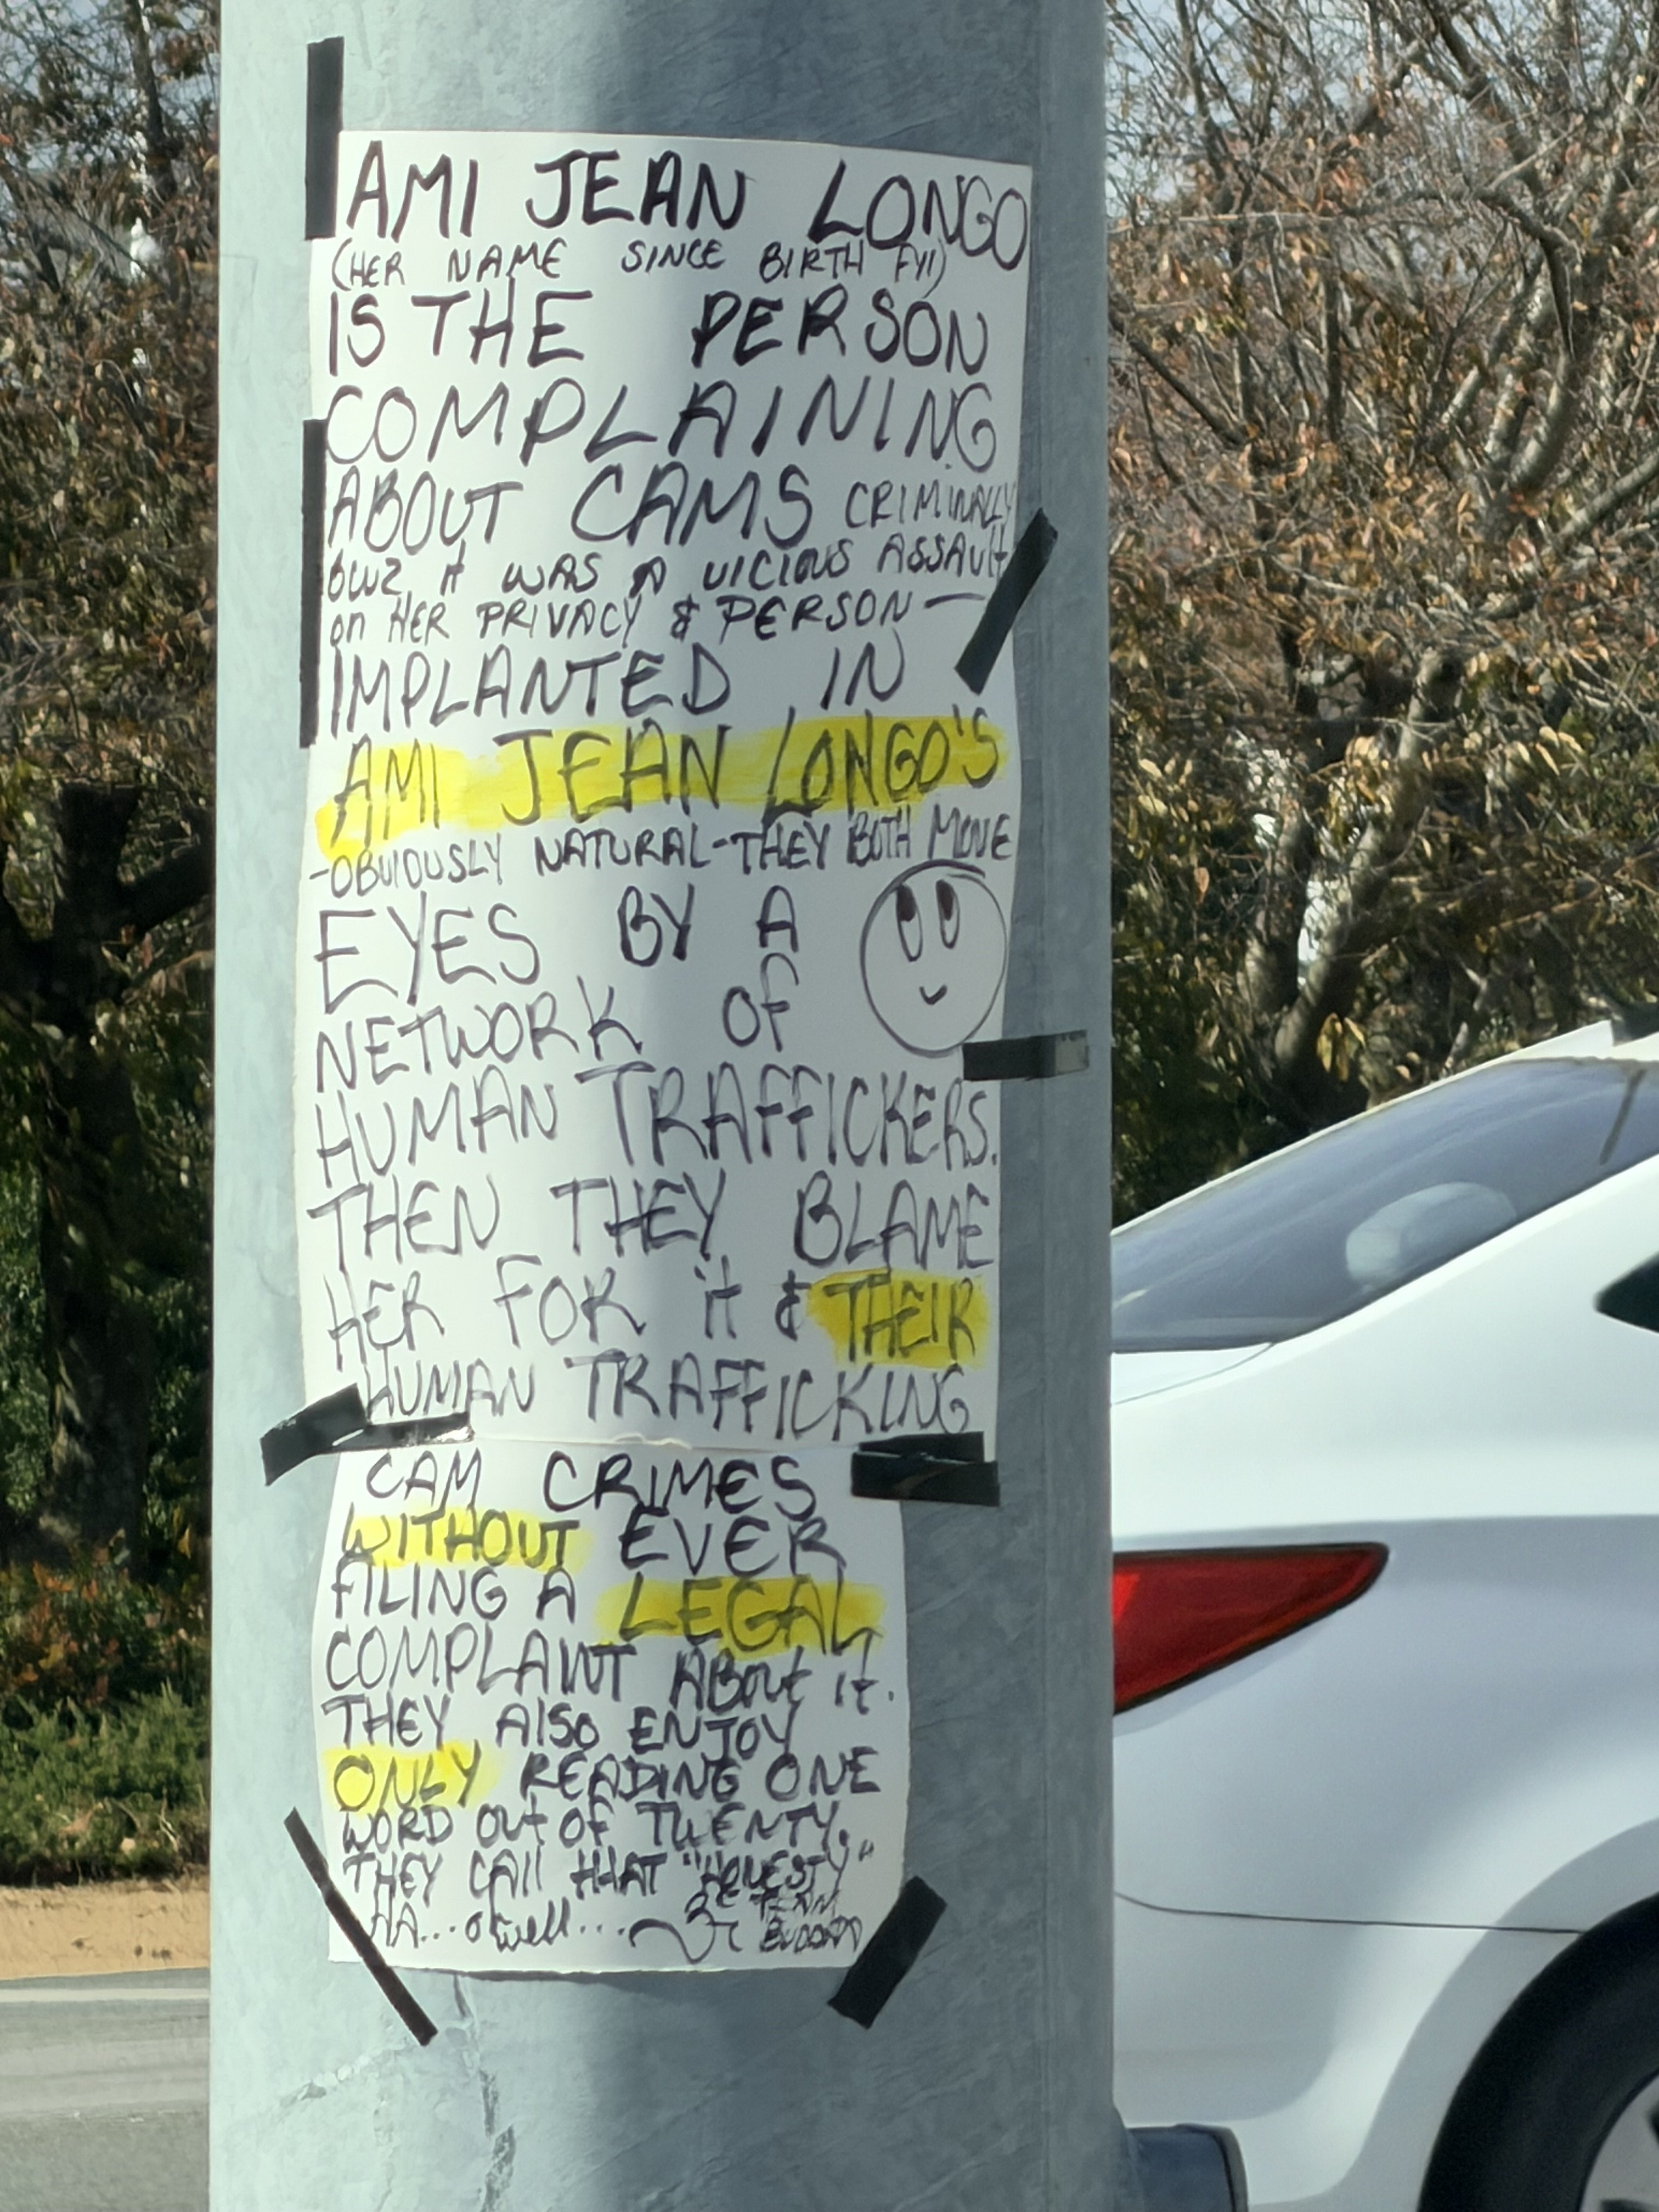 AMI JEAN LONGO
(HER NAME SINCE BIRTH FYI)
IS THE PERSON
COMPLAINING
ABOUT CAMS CRIMINALLY
it WAS A VICIOUS ASSAUlt
on HER PRIVACY & PERSON —
IMPLANTED IN
AMI JEAN LONGO'S
-OBVIOUSLY NATURAL-THEY BOTH MOVE
EYES BY A
NETWORK OF
HUMAN TRAFFICKERS.
THEN THEY BLAME
HER FOR it & THEIR
HUMAN TRAFFICKING
CAM CRIMES
WITHOUT EVER
FILING A LEGAL
COMPLAINT ABout it.
THEY AlSO ENJOY
ONLY READING ONE
WORD OUt OF TWENTY.
THEY CAll tHAT "HONESTY"
HA... o well...